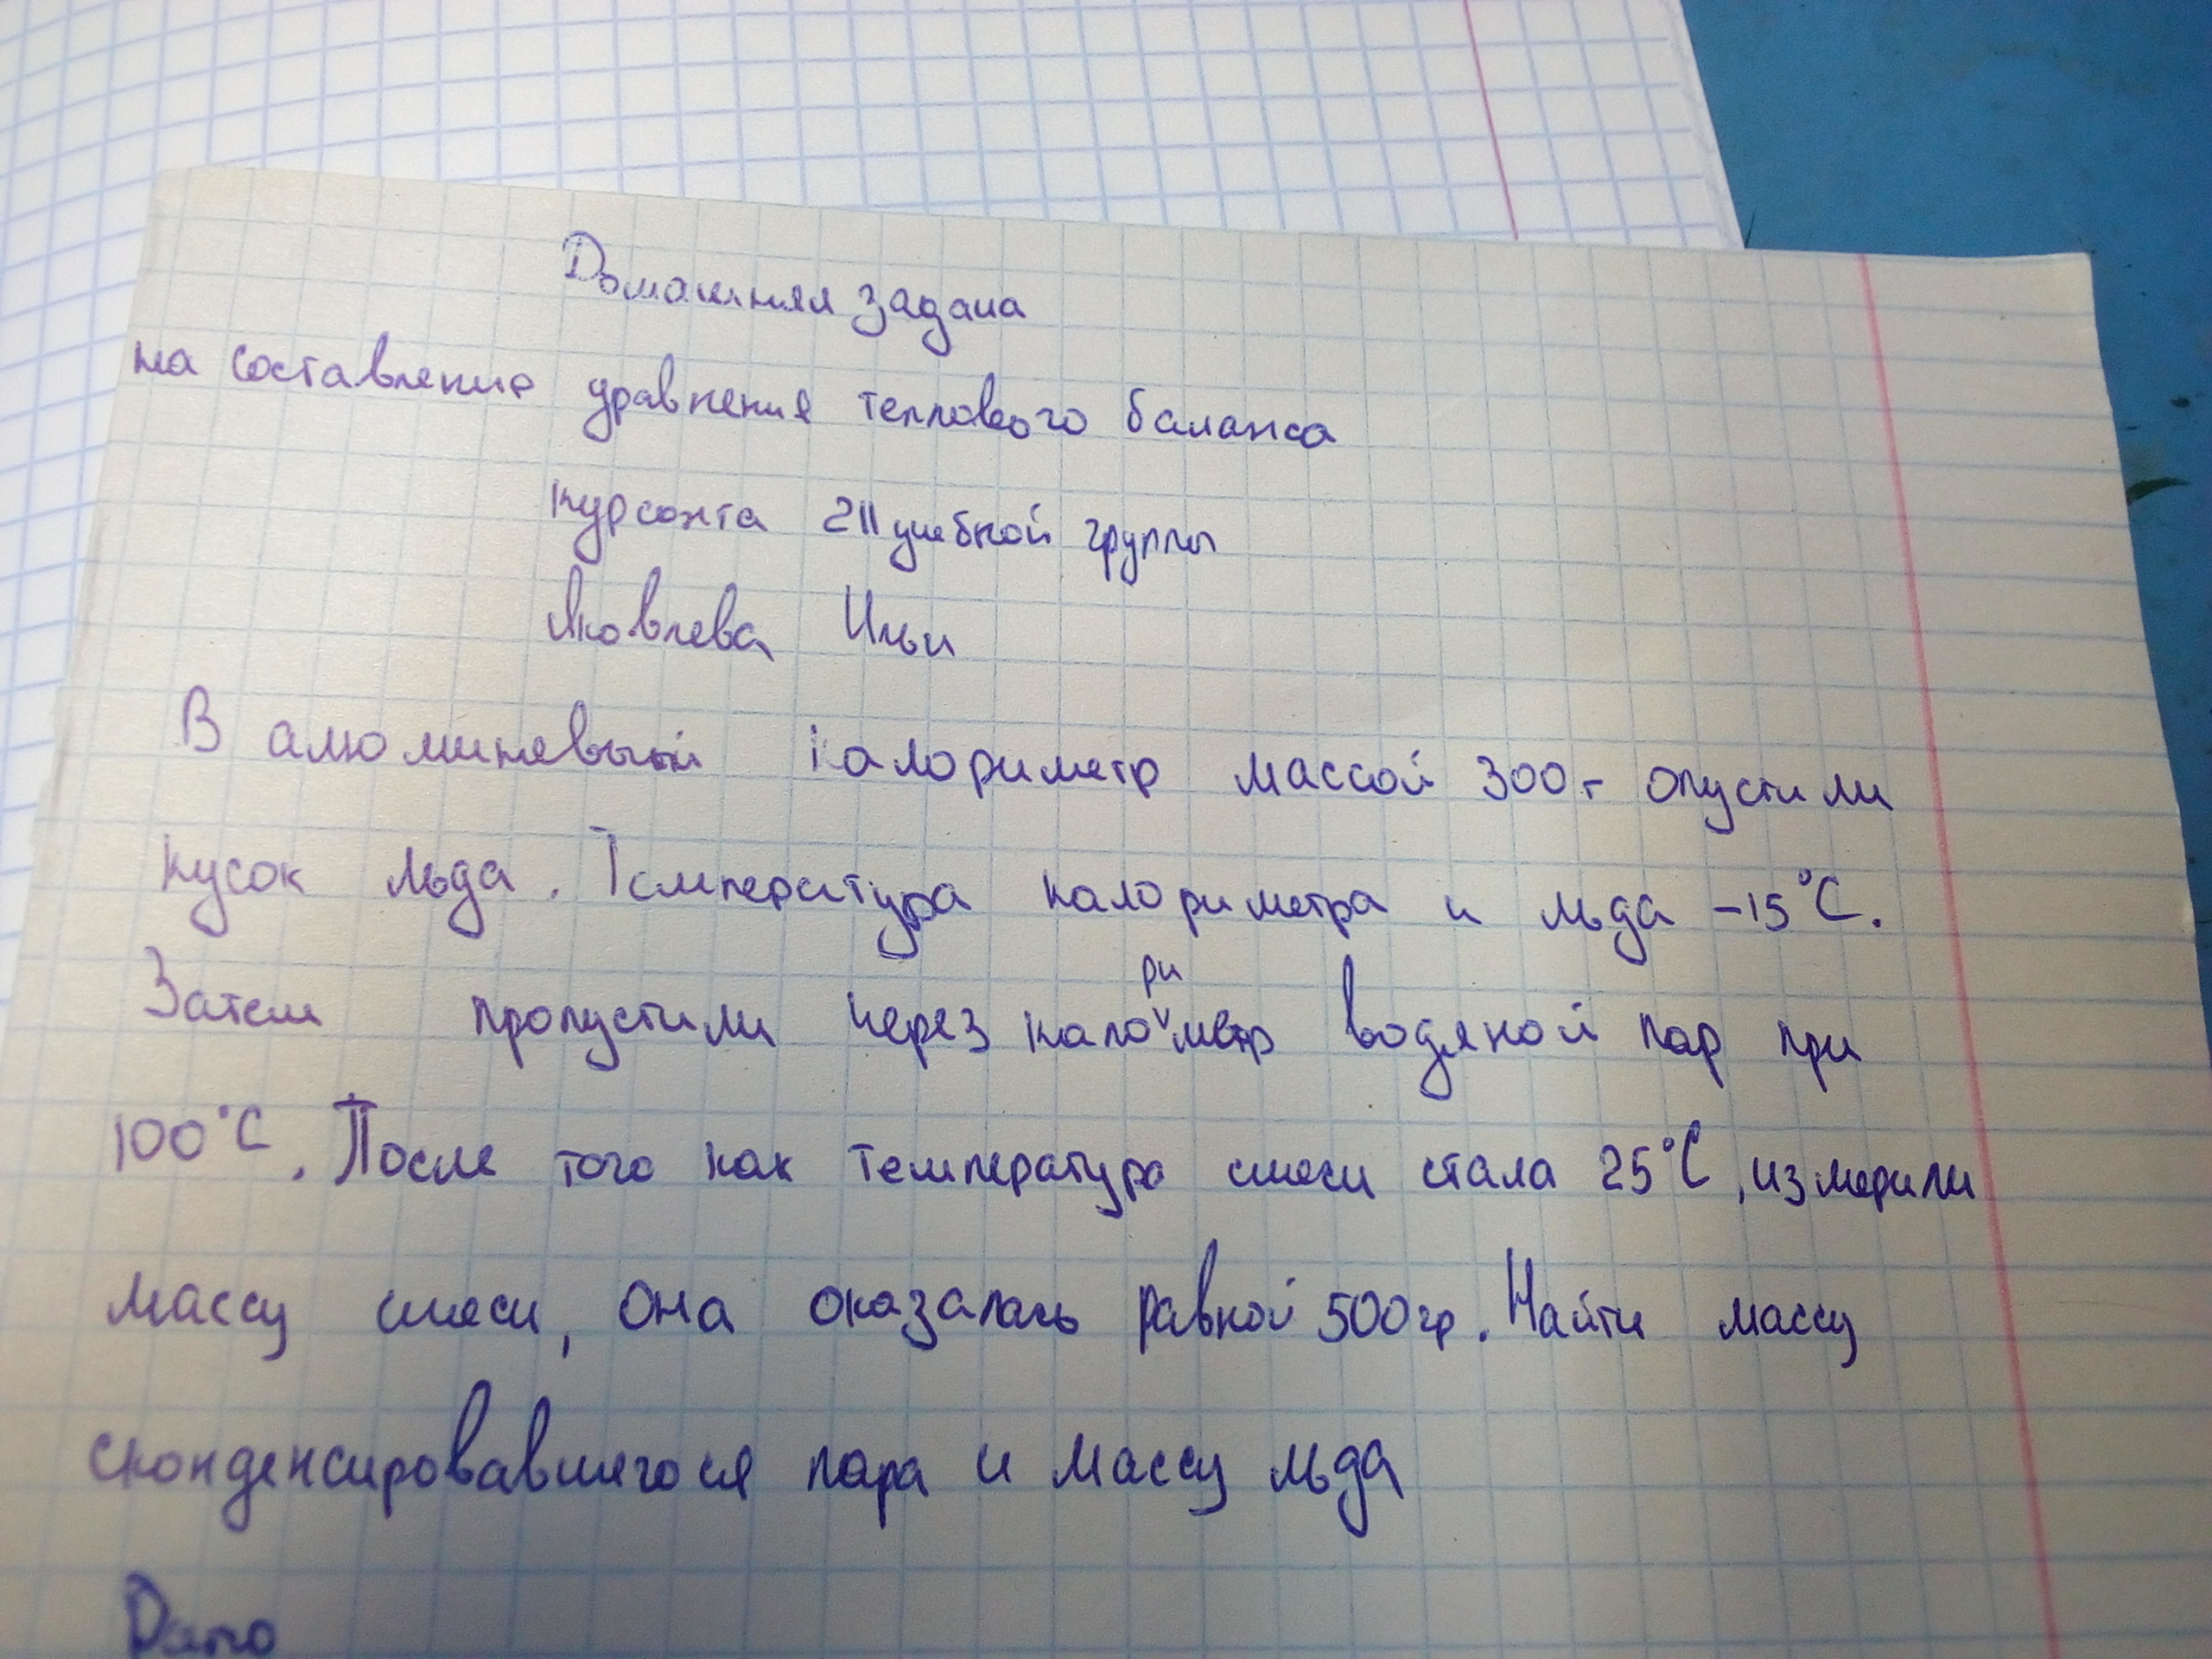 Домашняя задача
на составление уравнения теплового баланса
курсанта 211 учебной группы
Яковлева Ильи
В алюминевый калориметр массой 300 г опустили
кусок льда. Температура калориметра и льда -15°С.
Затем пропустили через калориметр водяной пар при
100°С. После того как температура смеси стала 25°С, измерили
массу смеси, она оказалась равной 500гр. Найти массу
сконденсировавшегося пара и массу льда
Дано